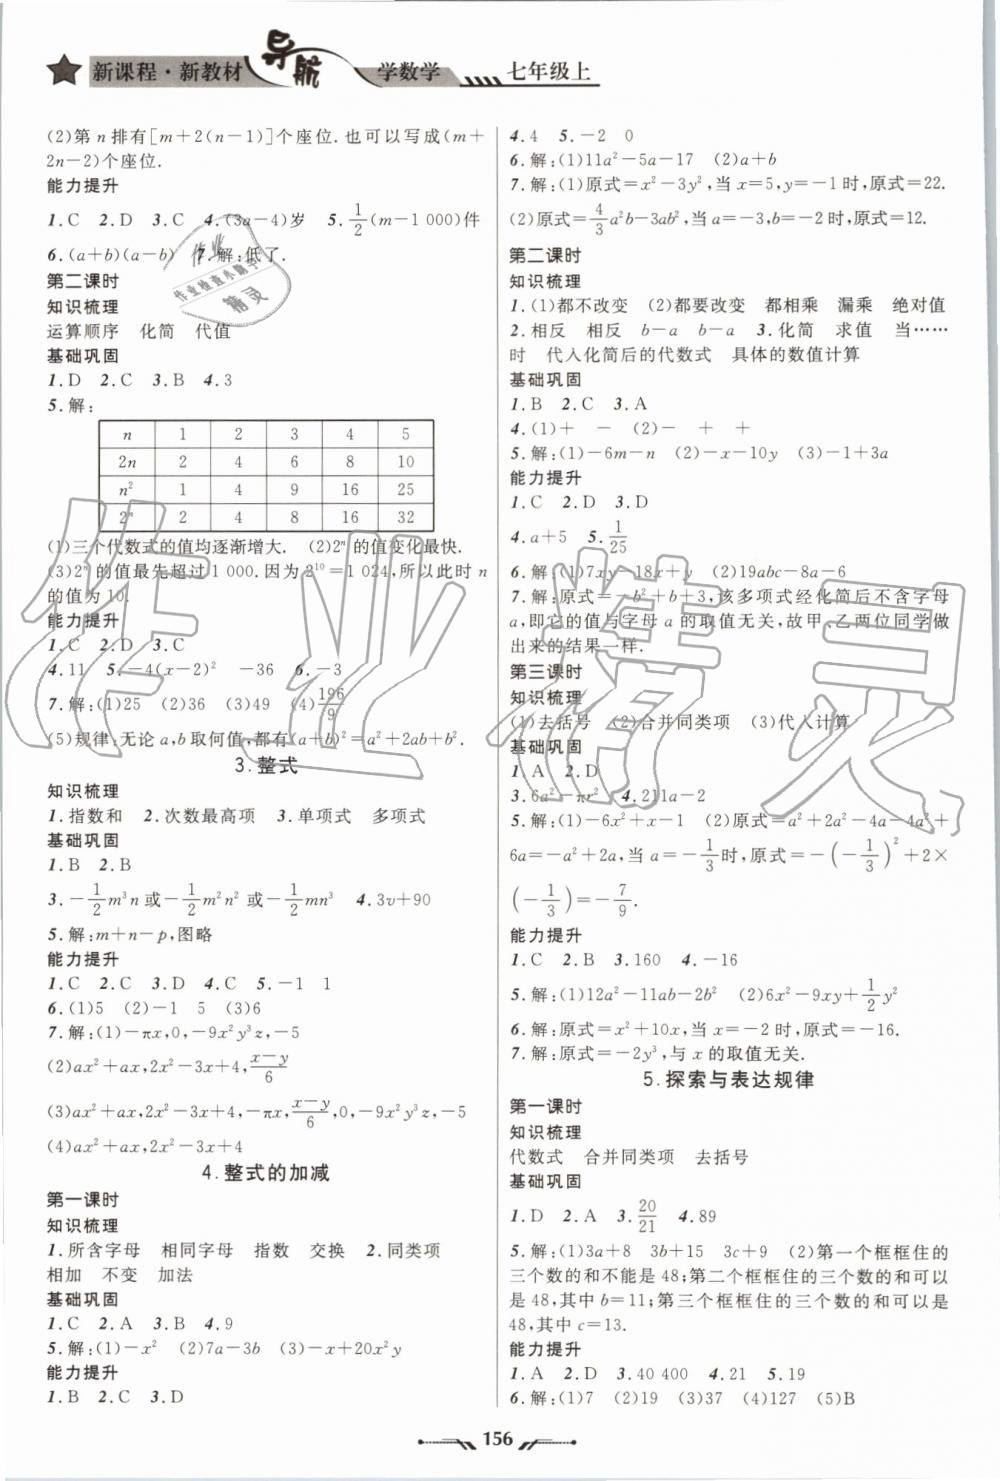 新课程·新教材 导航 学数学 七年级上
(2)第 n 排有[m+2(n-1)]个座位.也可以写成(m+
2n-2)个座位.
能力提升
1.C 2.D 3.C 4.(3a-4)岁 5.1/2(m-1 000)件
6.(a+b)(a-b) 7.解:低了.
第二课时
知识梳理
运算顺序 化简 代值
基础巩固
1.D 2.C 3.B 4.3
5.解:
n 1 2 3 4 5
2n 2 4 6 8 10
n² 1 4 9 16 25
2ⁿ 2 4 8 16 32
(1)三个代数式的值均逐渐增大. (2)2ⁿ的值变化最快.
(3)2ⁿ的值最先超过1 000.因为2¹⁰=1 024,所以此时 n
的值为10.
能力提升
1.C 2.D 3.C
4.11 5.-4(x-2)² -36 6.-3
7.解:(1)25 (2)36 (3)49 (4)196/9
(5)规律:无论 a,b 取何值,都有(a+b)²=a²+2ab+b².
3.整式
知识梳理
1.指数和 2.次数最高项 3.单项式 多项式
基础巩固
1.B 2.B
3.-1/2m³n或-1/2m²n²或-1/2mn³ 4.3v+90
5.解:m+n-p,图略
能力提升
1.C 2.C 3.D 4.C 5.-1 1
6.(1)5 (2)-1 5 (3)6
7.解:(1)-πx,0,-9x²y³z,-5
(2)ax²+ax,2x²-3x+4,(x-y)/6
(3)ax²+ax,2x²-3x+4,-πx,(x-y)/6,0,-9x²y³z,-5
(4)ax²+ax,2x²-3x+4
4.整式的加减
第一课时
知识梳理
1.所含字母 相同字母 指数 交换 2.同类项
相加 不变 加法
基础巩固
1.C 2.A 3.B 4.9
5.解:(1)-x² (2)7a-3b (3)-x+20x²y
能力提升
1.B 2.C 3.D
4.4 5.-2 0
6.解:(1)11a²-5a-17 (2)a+b
7.解:(1)原式=x²-3y²,当x=5,y=-1时,原式=22.
(2)原式=4/3a²b-3ab²,当a=-3,b=-2时,原式=12.
第二课时
知识梳理
1.(1)都不改变 (2)都要改变 都相乘 漏乘 绝对值
2.相反 相反 b-a b-a 3.化简 求值 当……
时 代入化简后的代数式 具体的数值计算
基础巩固
1.B 2.C 3.A
4.(1)+ - (2)- + +
5.解:(1)-6m-n (2)-x-10y (3)-1+3a
能力提升
1.C 2.D 3.D
4.a+5 5.1/25
6.解:(1)7xy-18x+y (2)19abc-8a-6
7.解:原式=-b²+b+3,该多项式经化简后不含字母
a,即它的值与字母 a 的取值无关,故甲、乙两位同学做
出来的结果一样.
第三课时
知识梳理
(1)去括号 (2)合并同类项 (3)代入计算
基础巩固
1.A 2.D
3.6a²-πr² 4.211a-2
5.解:(1)-6x²+x-1 (2)原式=a²+2a²-4a-4a²+
6a=-a²+2a,当a=-1/3时,原式=-(-1/3)²+2×
(-1/3)=-7/9.
能力提升
1.C 2.B 3.160 4.-16
5.解:(1)12a²-11ab-2b² (2)6x²-9xy+1/2y²
6.解:原式=x²+10x,当x=-2时,原式=-16.
7.解:原式=-2y³,与 x 的取值无关.
5.探索与表达规律
第一课时
知识梳理
代数式 合并同类项 去括号
基础巩固
1.D 2.A 3.20/21 4.89
5.解:(1)3a+8 3b+15 3c+9 (2)第一个框框住的
三个数的和不能是48;第二个框框住的三个数的和可以
是48,其中b=11;第三个框框住的三个数的和可以是
48,其中c=13.
能力提升
1.A 2.D 3.40 400 4.21 5.19
6.解:(1)7 (2)19 (3)37 (4)127 (5)B
156
作业
作业检查小助手
精灵
作业精灵